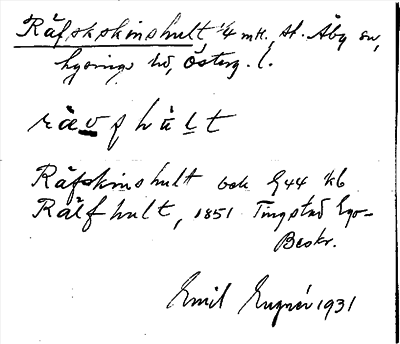 Räfskskinshult 1/4 mtl, St. Åby sn,
Lysings hd, Österg. l.
rävfhult
Räfskinshult och 1944 kb
Rälfhult, 1851 Tingstad Ego-
Beskr.
Emil Eugnér 1931